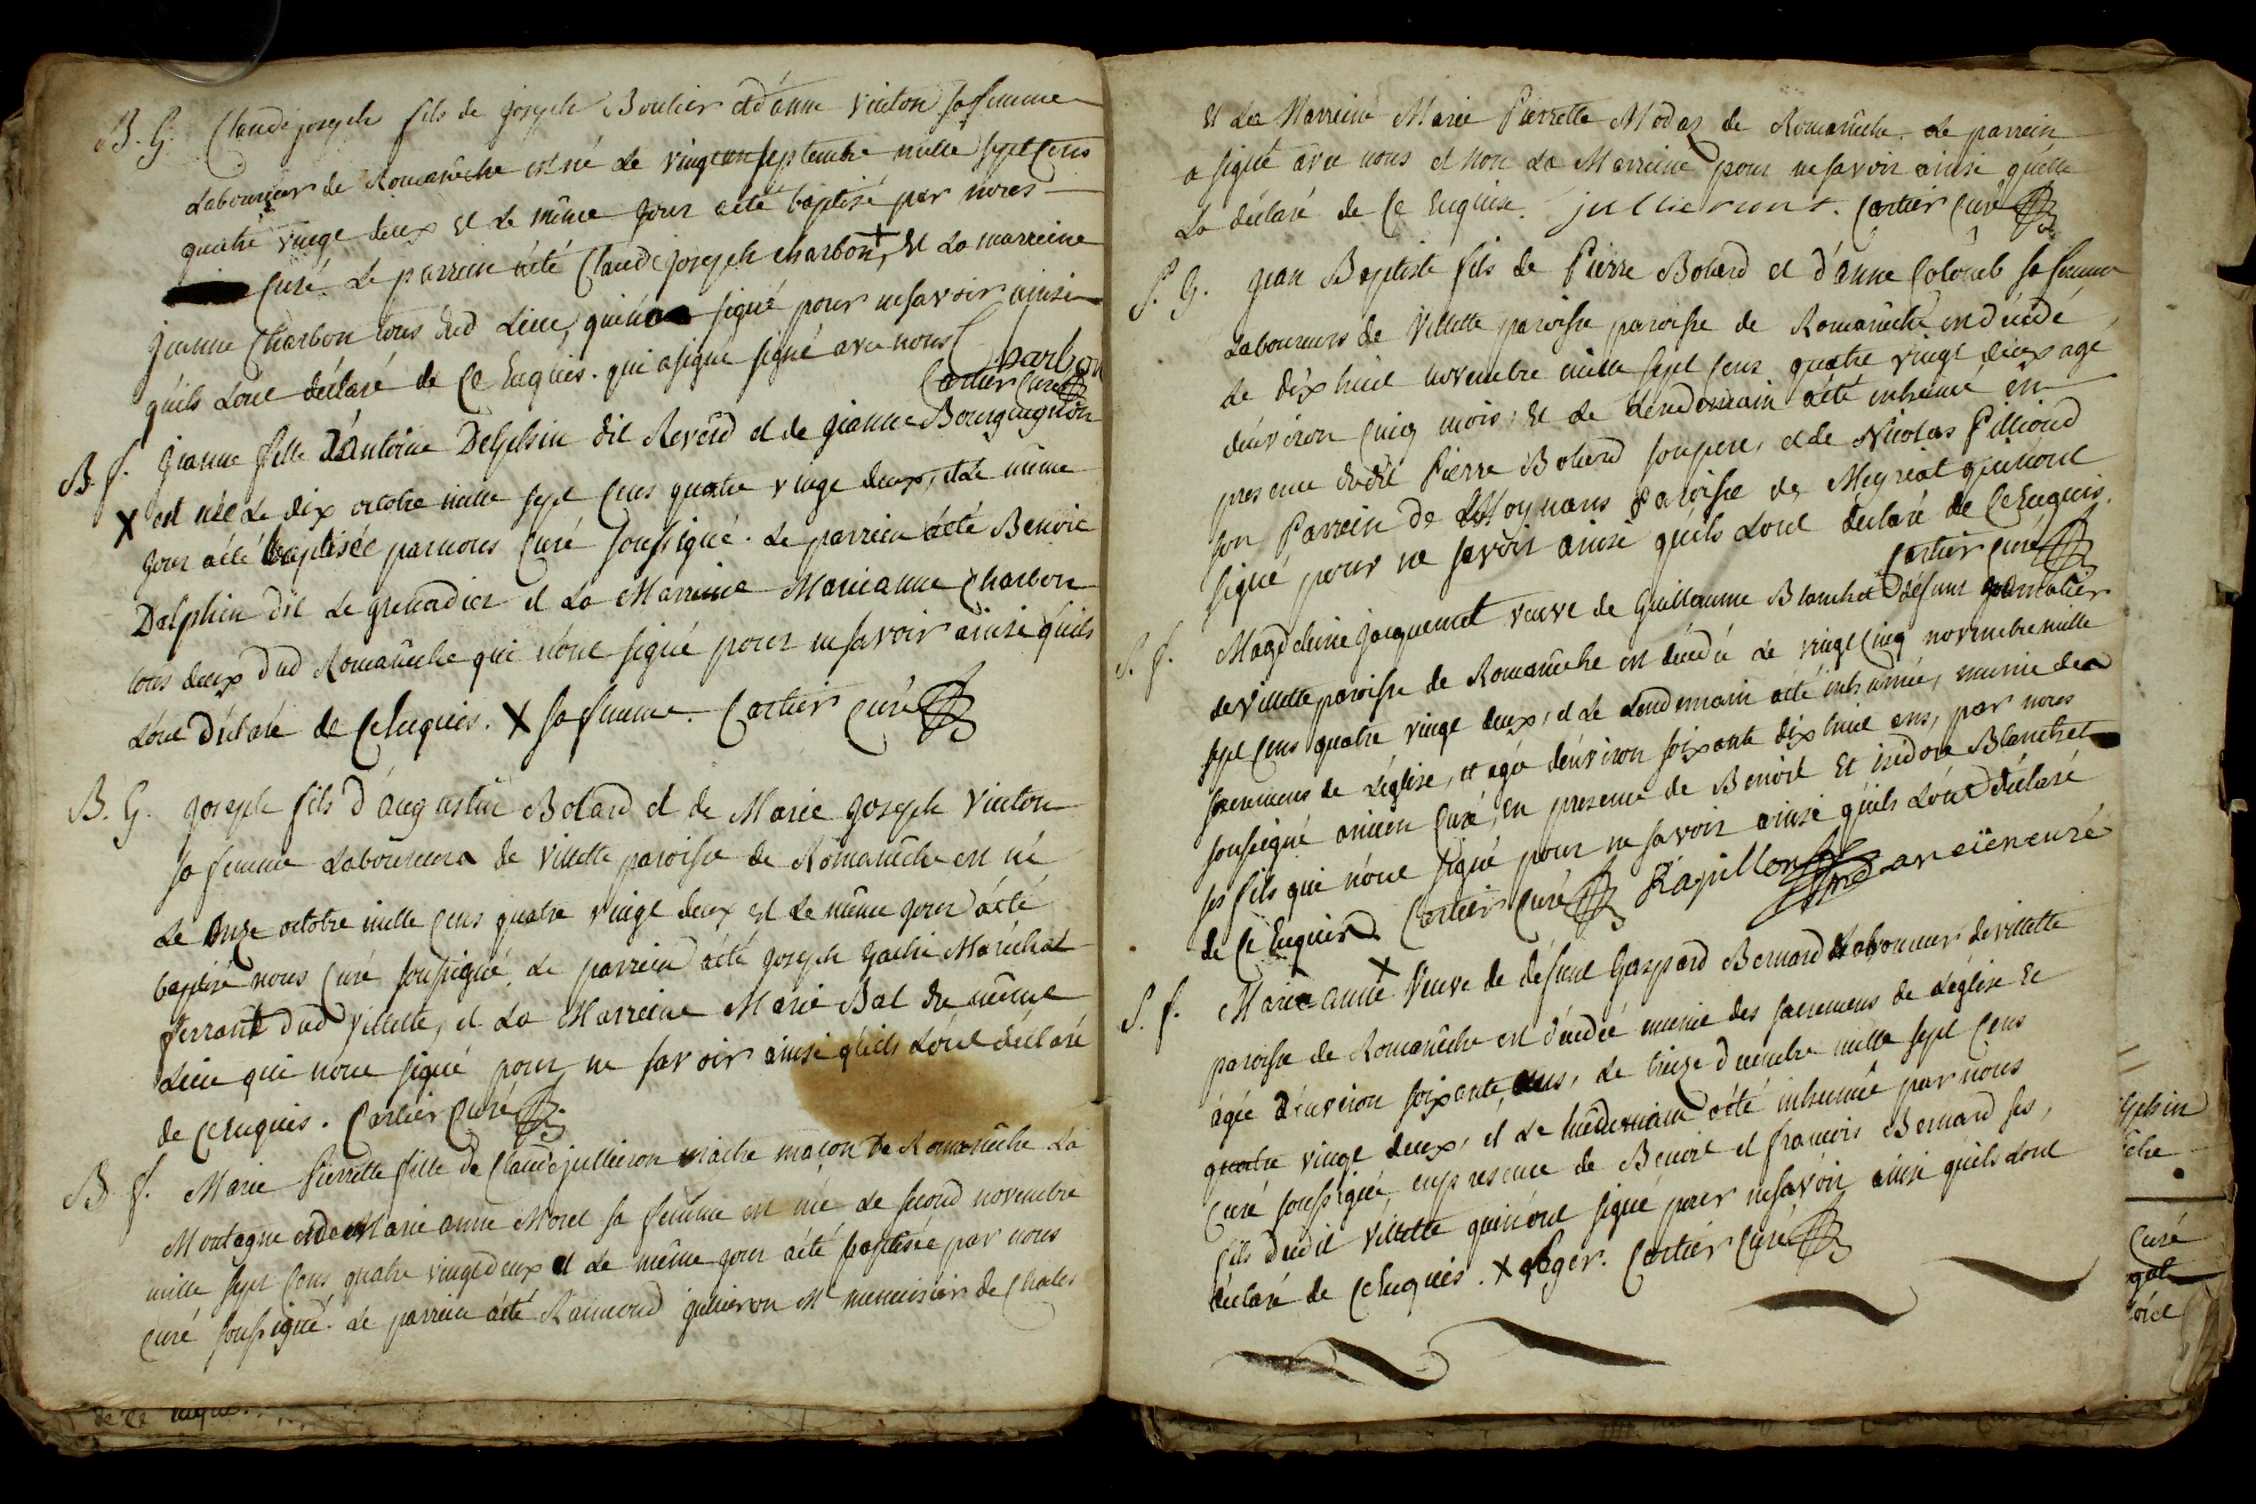 B. G. Claude joseph fils de joseph Boulier et d'anne vuiton sa femme
Laboureur de Romanèche est né le vingt un septembre mille sept cens
quatre vingt deux et le même jour a été baptisé par nous
curé. Le parrein a été Claude joseph charbon, X et la marreine
jeanne Charbon tous dud Lieu, qui n'a signé pour ne savoir ainsi
qu'ils L'ont déclaré de ce Enquis. qui a signé signé avec nous Charbon
Cartier curé
B. f. jeanne fille d'Antoine Delphin dit Reverd et de jeanne Bourguignon
X est née le dix octobre mille sept cens quatre vingt deux, et le même
jour a été baptisée par nous curé soussigné. Le parrein a été Benoit
Delphin dit Le grenadier et La Marreine Marianne Charbon
tous deux dud Romanèche qui n'ont signé pour ne savoir ainsi qu'ils
L'ont déclaré de Ce Enquis. X sa femme. Cartier curé
B. G. joseph fils d'augustin Bolard et de Marie joseph vuiton
sa femme Laboureurs de villette paroisse de Romanèche est né
Le onze octobre mille cens quatre vingt deux et Le même jour a été
baptisé nous curé soussigné, Le parrein a été joseph Maréchal
ferrant dud villette, et La Marreine Marie Bal du même
Lieu qui n'ont signé pour ne savoir ainsi qu'ils L'ont déclaré
de Ce Enquis. Cartier curé
B. f. Marie Pierrette fille de Claude jullieron maitre maçon de Romanèche La
Montagne et de Marie anne Morel sa femme est née Le second novembre
mille sept cens quatre vingt deux et Le même jour a été baptisée par nous
curé soussigné. Le parrein a été Raimond jullieron Me menuisier de Chales
et La Marreine Marie Pierrette Modas de Romanèche. Le parrein
a signé avec nous et non La Marreine pour ne savoir ainsi qu'elle
La déclaré de Ce Enquise. jullieront. Cartier curé
S. G. jean Baptiste fils de Pierre Bolard et d'anne Colomb sa femme
Laboureurs de villette paroisse paroisse de Romanèche est décédé
Le dix huit novembre mille sept cens quatre vingt deux agé
d'environ cinq mois, et Le Lendemain a été inhumé en
presence dudit Pierre Bolard son pere, et de Nicolas Pillioud
son Parrein de paroisse de Meyriat qui n'ont
signé pour ne savoir ainsi qu'ils L'ont déclaré de Ce Enquis.
Cartier curé
S. f. Magdeleine jacquemet veuve de Guillaume Blanchet défunt
de villette paroisse de Romanèche est décédée Le vingt Cinq novembre mille
sept cens quatre vingt deux, et Le Lendemain a été inhumée, munie des
sacremens de L'église, et agée d'environ soixante dix huit ans, par nous
soussigné ancien curé, en presence de Benoit Et isidore Blanchet
ses fils qui n'ont signé pour ne savoir ainsi qu'ils L'ont déclaré
de Ce Enquis. Cartier curé Rapillon ancien curé
S. f. Marie anne X veuve de défunt Gaspard Bernard Laboureur de villette
paroisse de Romanèche est décédée munie des sacremens de L'église et
agée d'environ soixante ans, Le treize decembre mille sept cens
quatre vingt deux, et Le Lendemain a été inhumée par nous
curé soussigné en presence de Benoit et francois Bernard ses
fils dudit villette qui n'ont signé pour ne savoir ainsi qu'ils L'ont
déclaré de Ce Enquis. X Cartier curé
curé